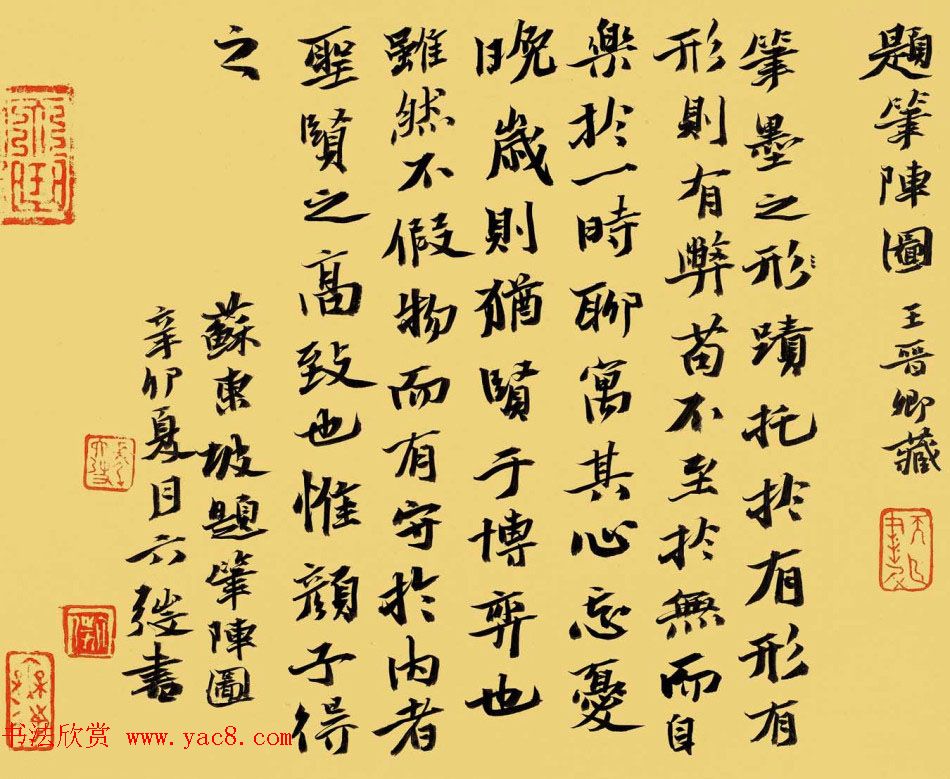 題筆陣圖 王晉卿藏
筆墨之形蹟托於有形有
形則有弊苟不至於無而自
樂於一時聊寓其心忘憂
晚歲則猶賢于博弈也
雖然不假物而有守於内者
聖賢之高致也惟顏子得
之
蘇東坡題筆陣圖
辛卯夏月六書
书法欣赏 www.yac8.com